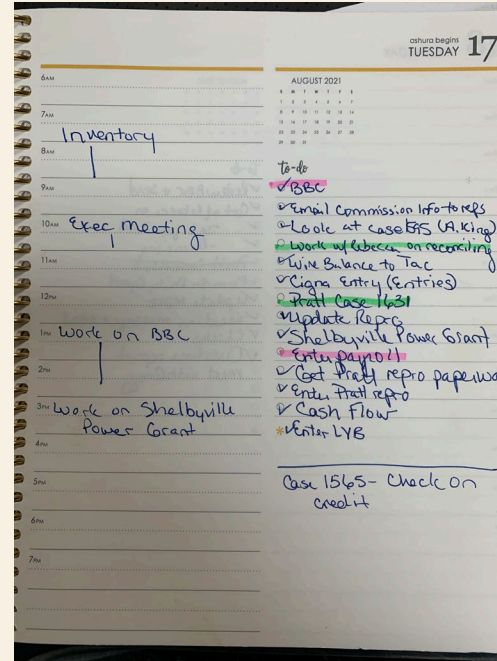 ashura begins
TUESDAY 17
6AM
7AM
Inventory
8AM
9AM
10AM Exec meeting
11AM
12PM
1PM Work on BBC
2PM
3PM Work on Shelbyville
Power Grant
4PM
5PM
6PM
7PM
AUGUST 2021
S M T W T F S
1 2 3 4 5 6 7
8 9 10 11 12 13 14
15 16 17 18 19 20 21
22 23 24 25 26 27 28
29 30 31
to-do
✓BBC
✓Email Commission Info to reps
✓Look at case (A. King)
Work w/ Rebecca on reconciling
✓Wire Balance to Tac
✓Cigna Entry (Entries)
Pratt Case 1631
✓Update Repro
✓Shelbyville Power Grant
Enter payroll
✓Get Pratt repro paperwo
✓Enter Pratt repro
✓Cash Flow
*✓Enter LYB
Case 1565- Check on
credit